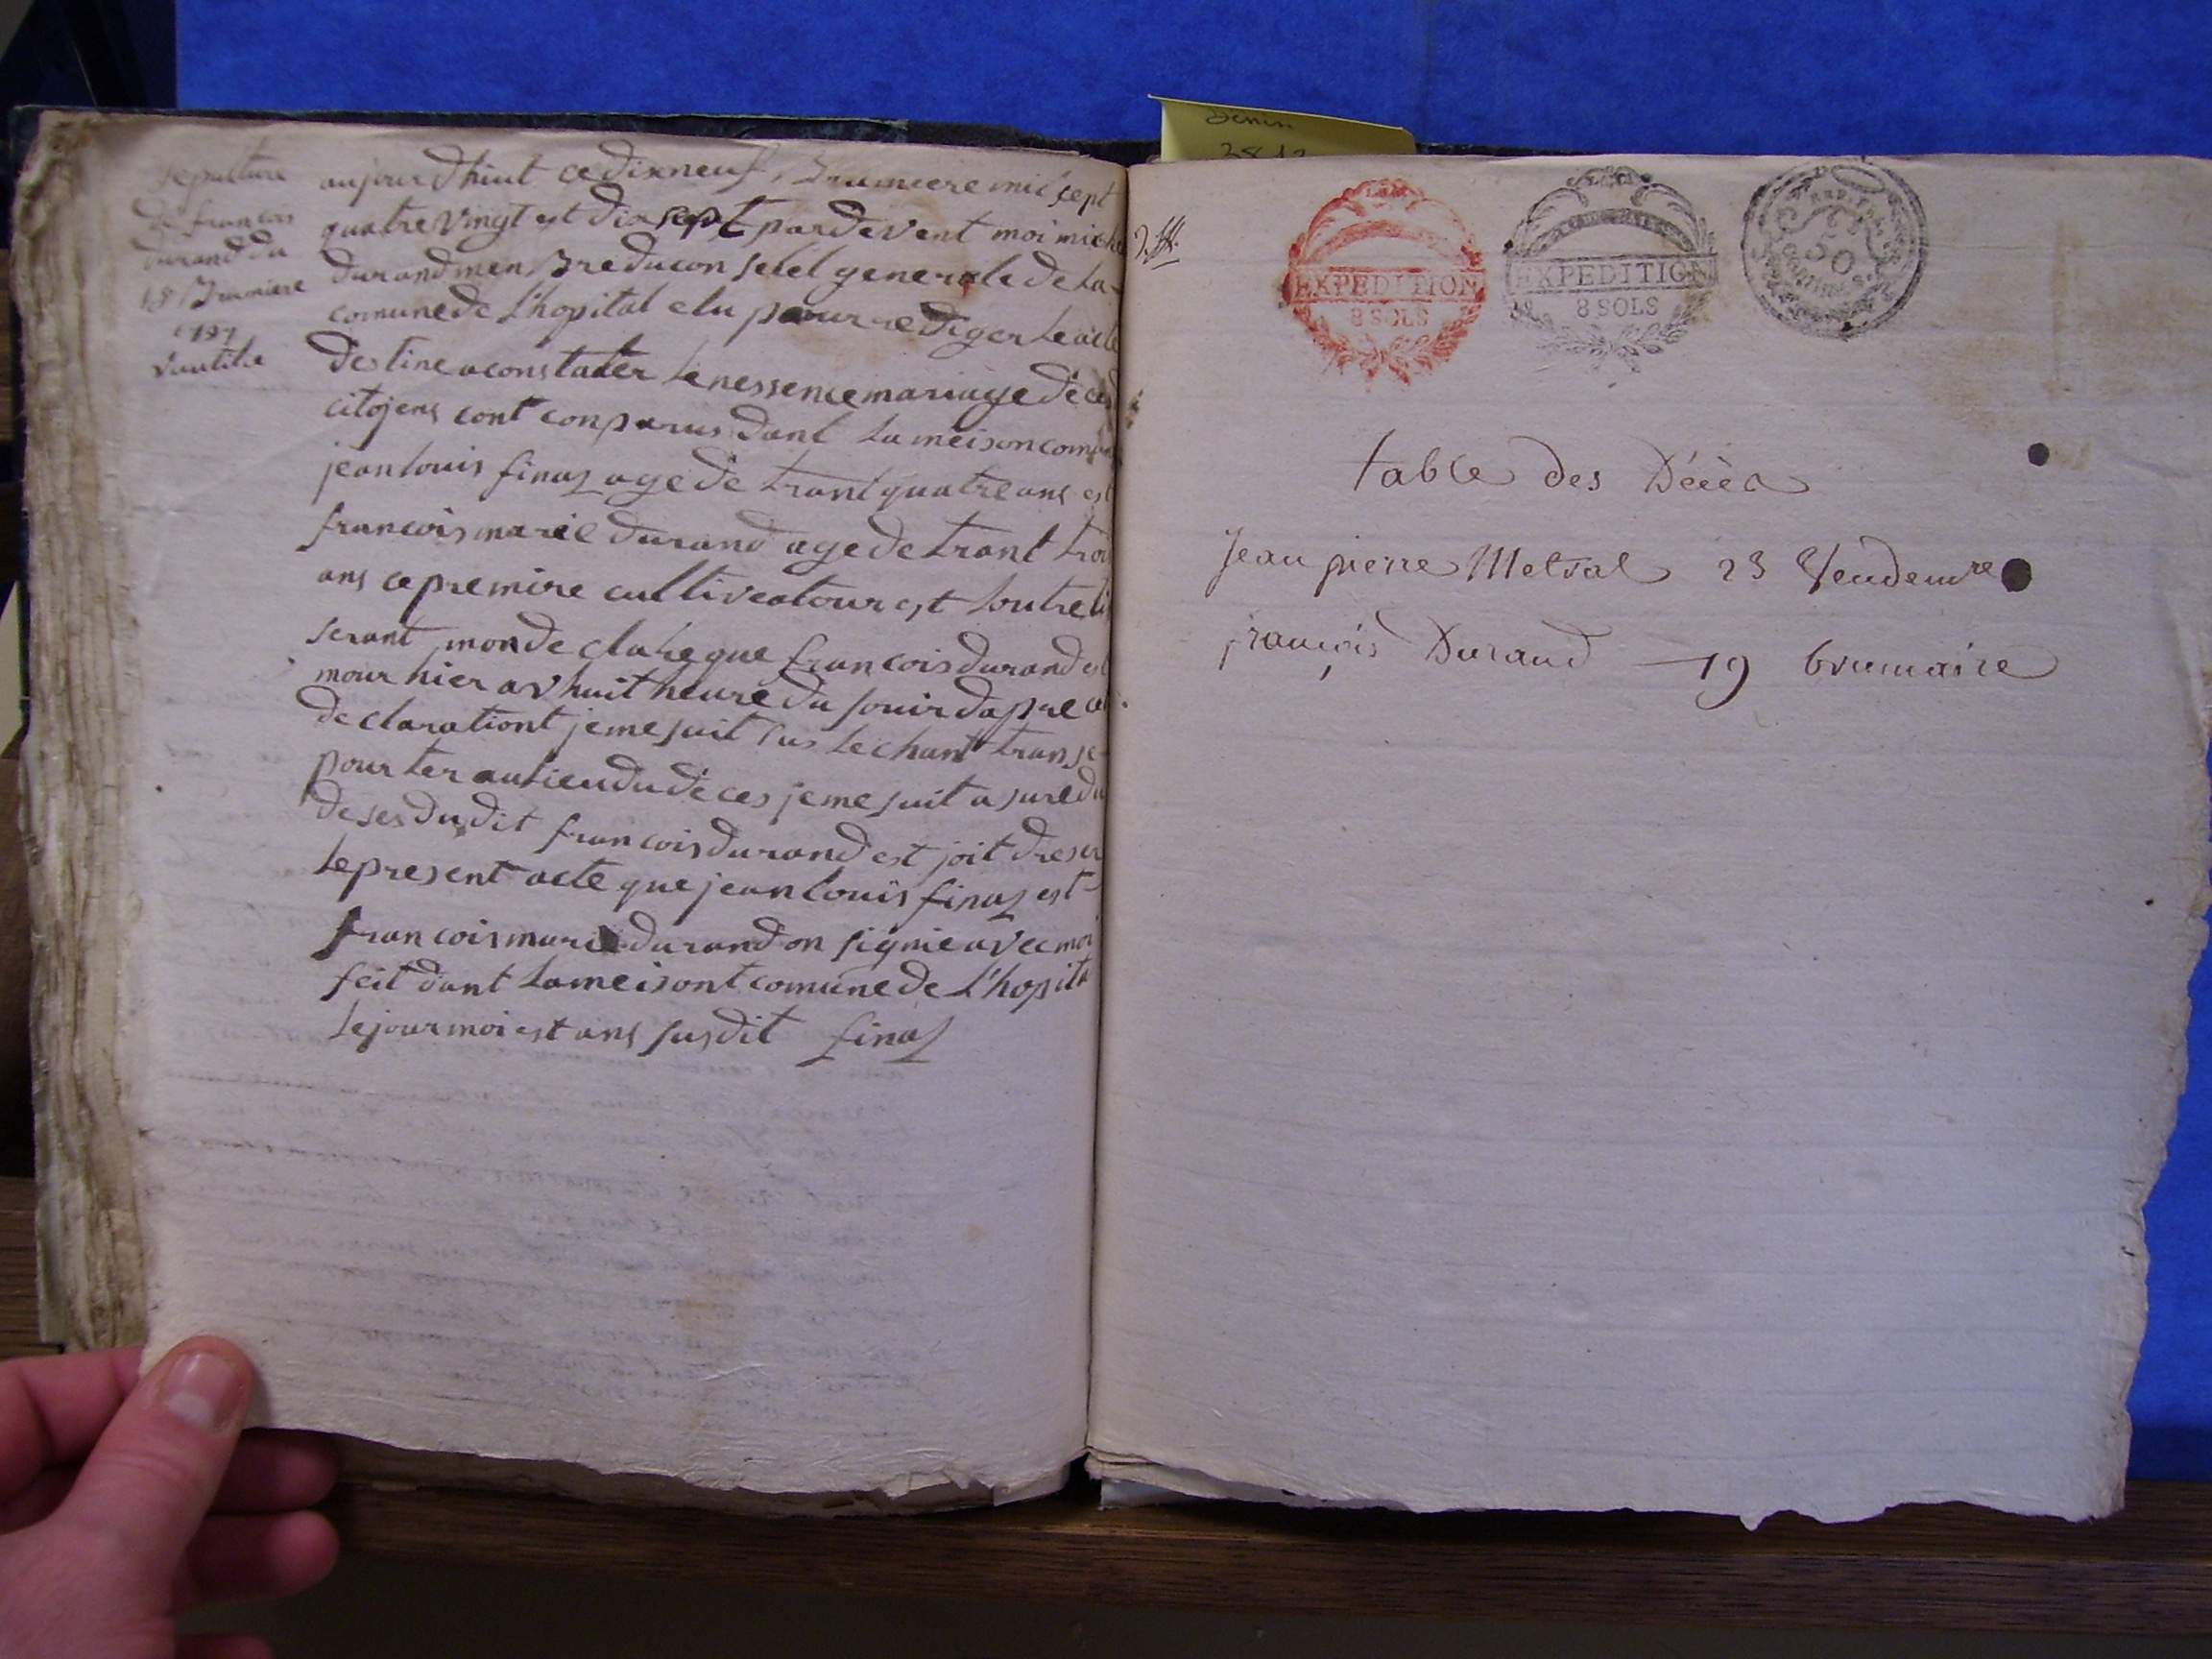 sepulture
de francois
durand du
18 Brumiere
1797
aujourdhiut ce dixneuf Brumiere mil sept
quatre vingt est dix sept par devent moi miche
durand menbre du conselel generale de la
comune de l'hopital elu pour rediger le acte
destine a constater le nessence mariage déces
citojens cont conparus dant la meison comu
jean louis finaz age de trant quatre ans est
francois marie durand age de trant troi
ans ce premire cultiveatour est loutre ti
serant mon de clare que francois durand est
mour hier av huit heure du souir dapre ce
declarationt je me suit sus le chant transe
pourter au lieu du déces je me suit asure du
deses du dit francois durand est joit dreser
le present acte que jean louis finaz est
francois marie durand on signie avec moi
feit dant la meisont comune de l'hopita
le jour moi est ans susdit finaz
EXPEDITION
8 SOLS
EXPEDITION
8 SOLS
50
table des Décès
Jean pierre Metral 23 Vendemre
françois Durand - 19 brumaire